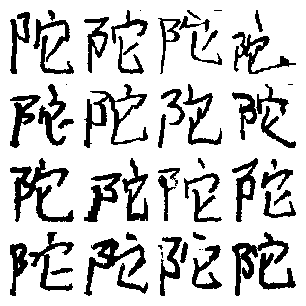 陀陀陀陀
陀陀陀陀
陀陀陀陀
陀陀陀陀